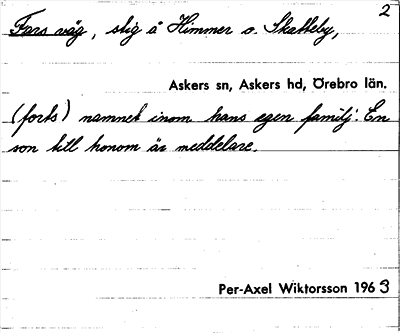 2
Fars väg, stig å Himmer o. Skatteby,
Askers sn, Askers hd, Örebro län.
(forts) namnet inom hans egen familj. En
son till honom är meddelare.
Per-Axel Wiktorsson 1963